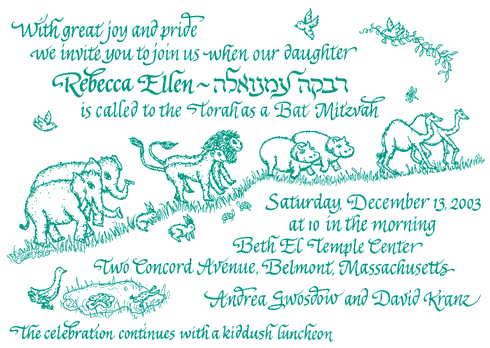 With great joy and pride
we invite you to join us when our daughter
Rebecca Ellen ~ רבקה עמנואלה
is called to the Torah as a Bat Mitzvah
Saturday, December 13, 2003
at 10 in the morning
Beth El Temple Center
Two Concord Avenue, Belmont, Massachusetts
Andrea Gwosdow and David Kranz
The celebration continues with a kiddush luncheon